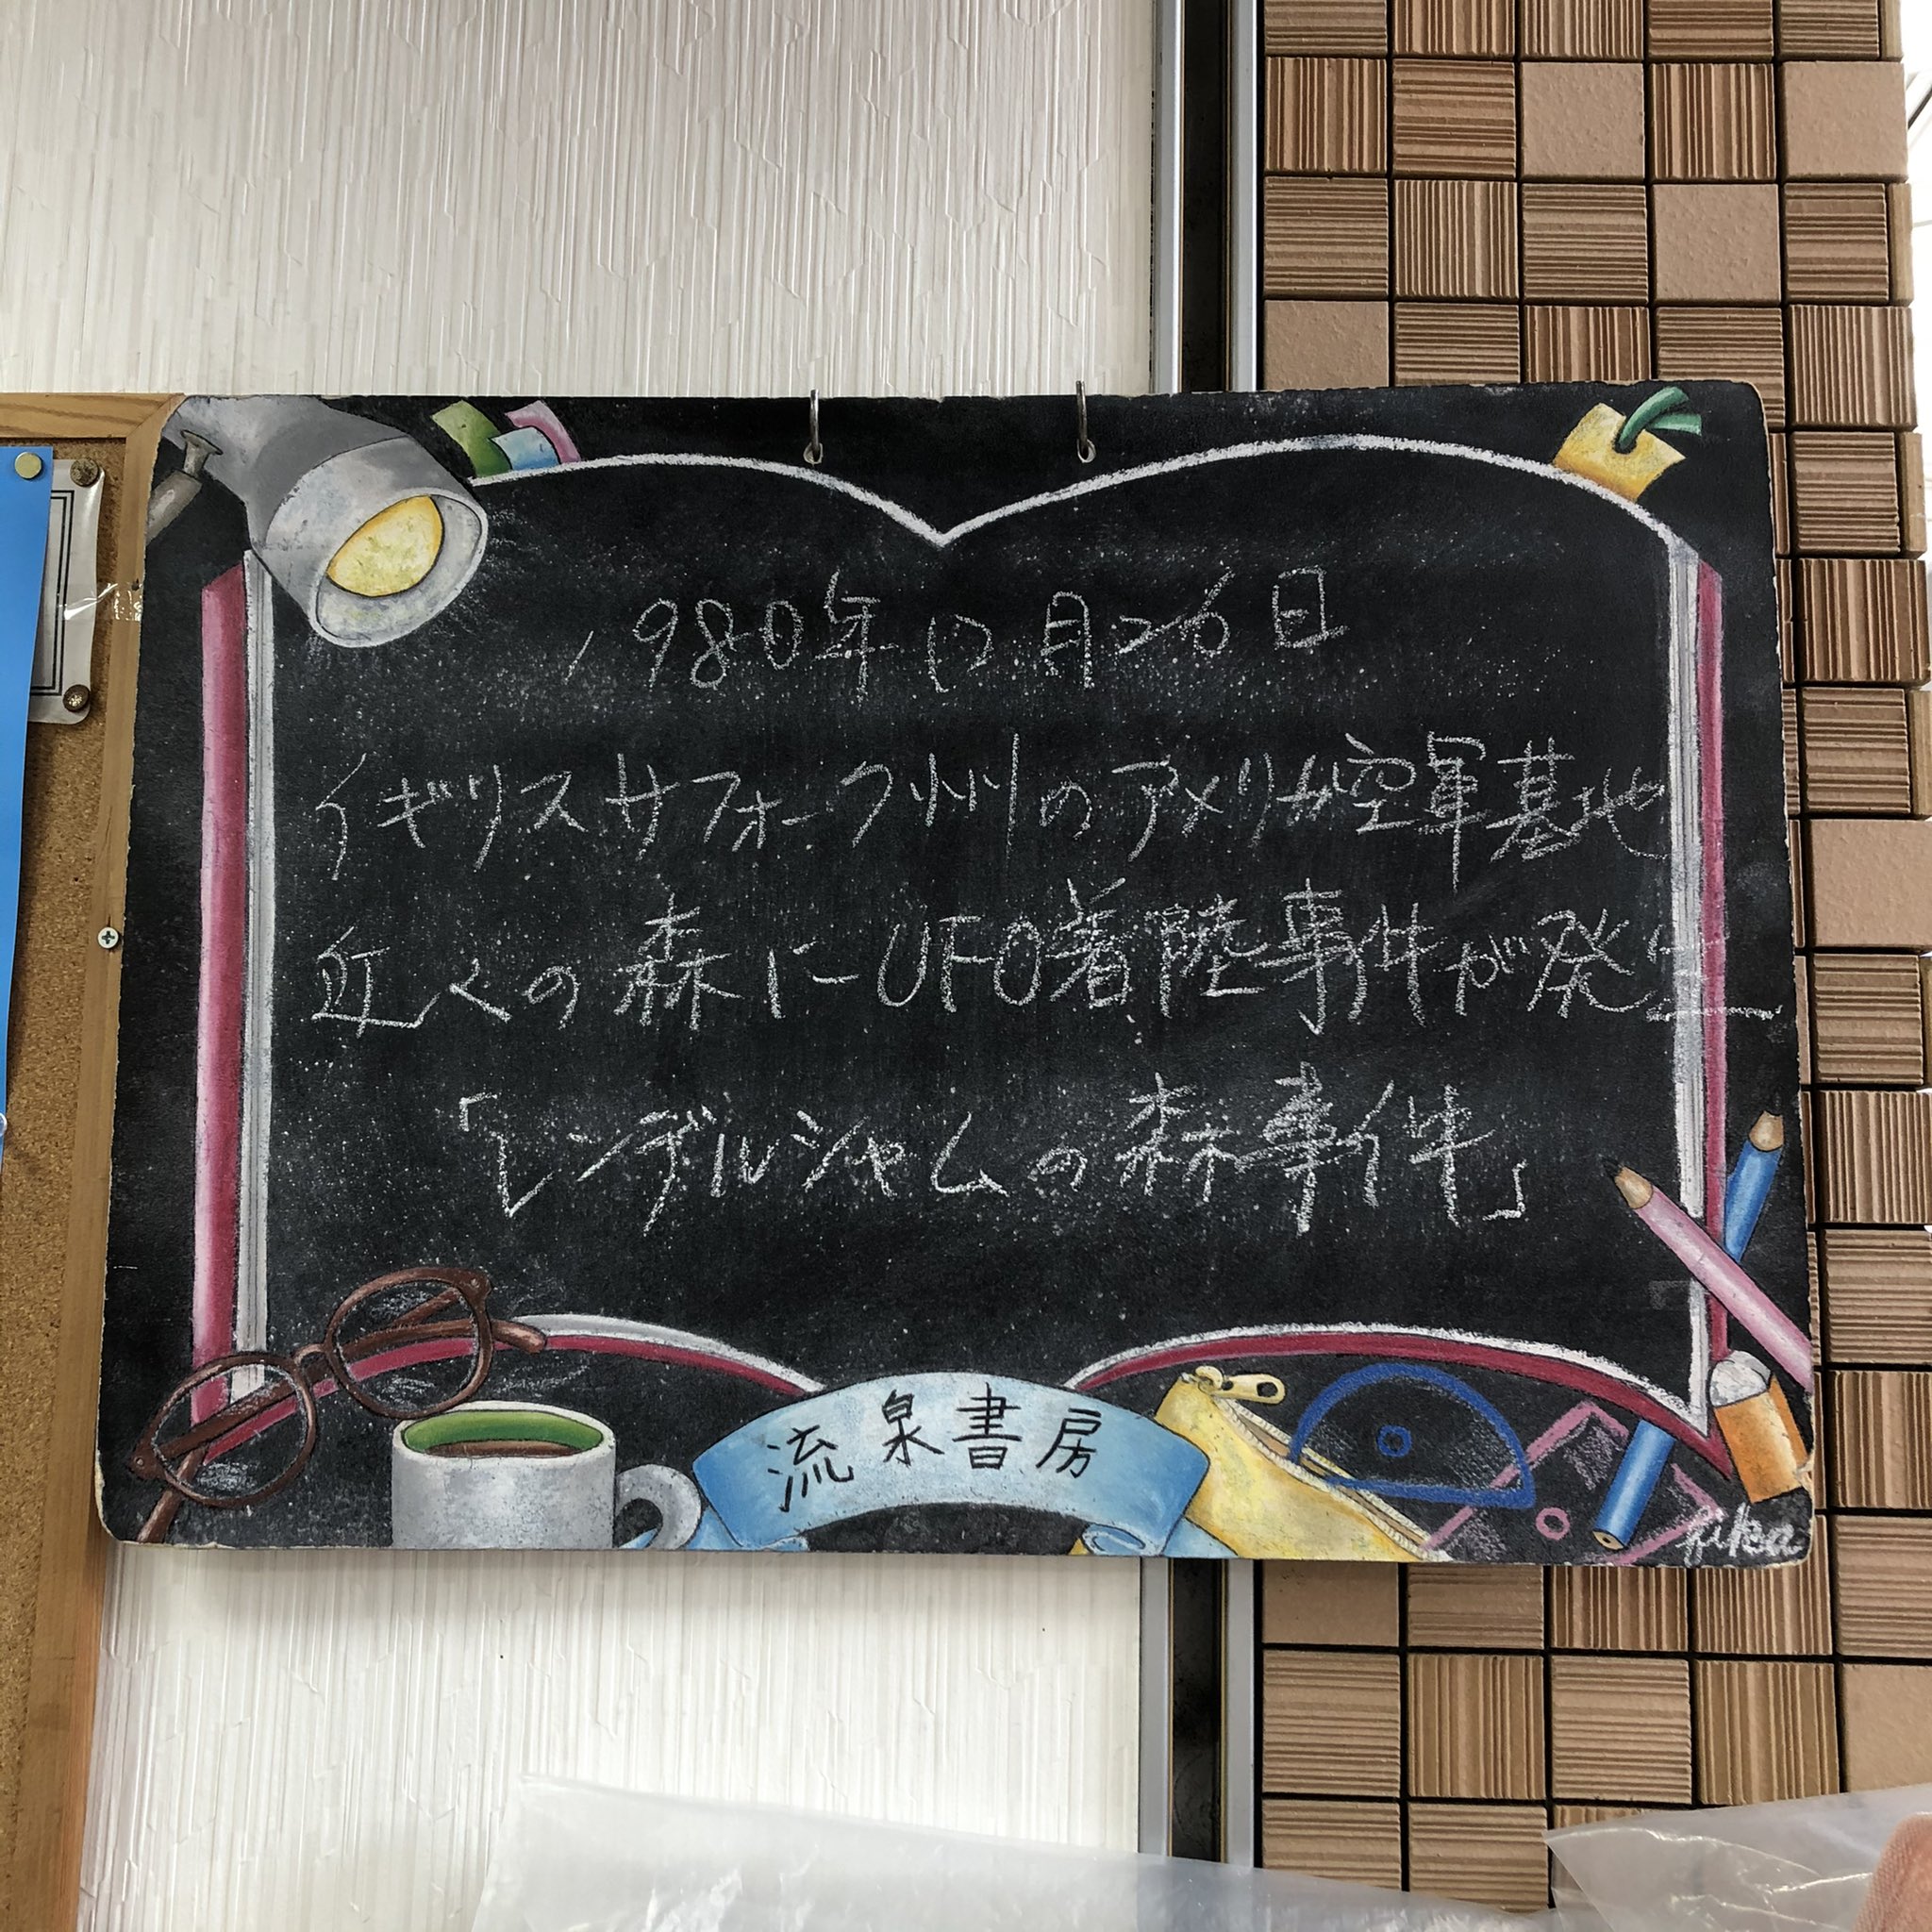 1980年12月26日
イギリスサフォーク州のアメリカ空軍基地
近くの森にUFO着陸事件が発生
「レンデルシャムの森事件」
流泉書房
fika